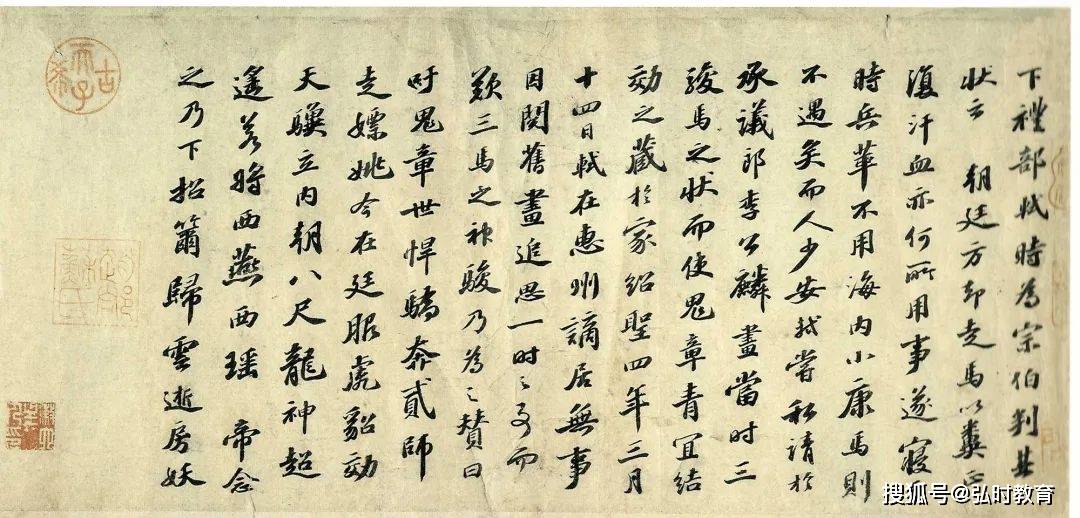 下禮部軾時為宗伯判其
狀云 朝廷方却走馬以糞正
復汗血亦何所用事遂寢于
時兵革不用海内小康馬則
不遇矣而人少安軾嘗私請於
承議郎李公麟畫當時三
駿馬之狀而使鬼章青宜結
効之藏於家紹聖四年三月
十四日軾在惠州謫居無事
因閱舊畫追思一時之事而
歎三馬之神駿乃為之贊曰
吁鬼章世悍驕奔貳師
走嫖姚今在廷服虎貂効
天驥立内朝八尺龍神超
遙若將西燕西瑤 帝念
之乃下招籋歸雲逝房妖
古希天子
搜狐号@弘时教育